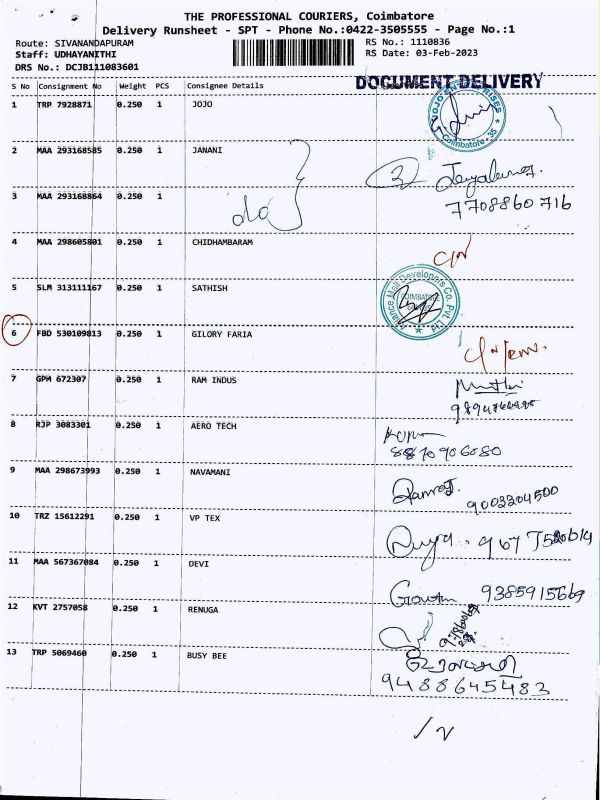 THE PROFESSIONAL COURIERS, Coimbatore
Delivery Runsheet - SPT - Phone No.:0422-3505555 - Page No.:1
Route: SIVANANDAPURAM RS No.: 1110836
Staff: UDHAYANITHI RS Date: 03-Feb-2023
DRS No.: DCJB111083601
DOCUMENT DELIVERY
S No Consignment No Weight PCS Consignee Details
1 TRP 7928871 0.250 1 JOJO
Coimbatore - 35
2 MAA 293168585 0.250 1 JANANI
3 MAA 293168864 0.250 1
do
7708860716
4 MAA 298605801 0.250 1 CHIDHAMBARAM
5 SLM 313111167 0.250 1 SATHISH
COIMBATORE
6 FBD 530109813 0.250 1 GILORY FARIA
7 GPM 672307 0.250 1 RAM INDUS
8 RJP 3083301 0.250 1 AERO TECH
8870906080
9 MAA 298673993 0.250 1 NAVAMANI
9003204500
10 TRZ 15612291 0.250 1 VP TEX
11 MAA 567367084 0.250 1 DEVI
9385915669
12 KVT 2757058 0.250 1 RENUGA
13 TRP 5069460 0.250 1 BUSY BEE
9488645483